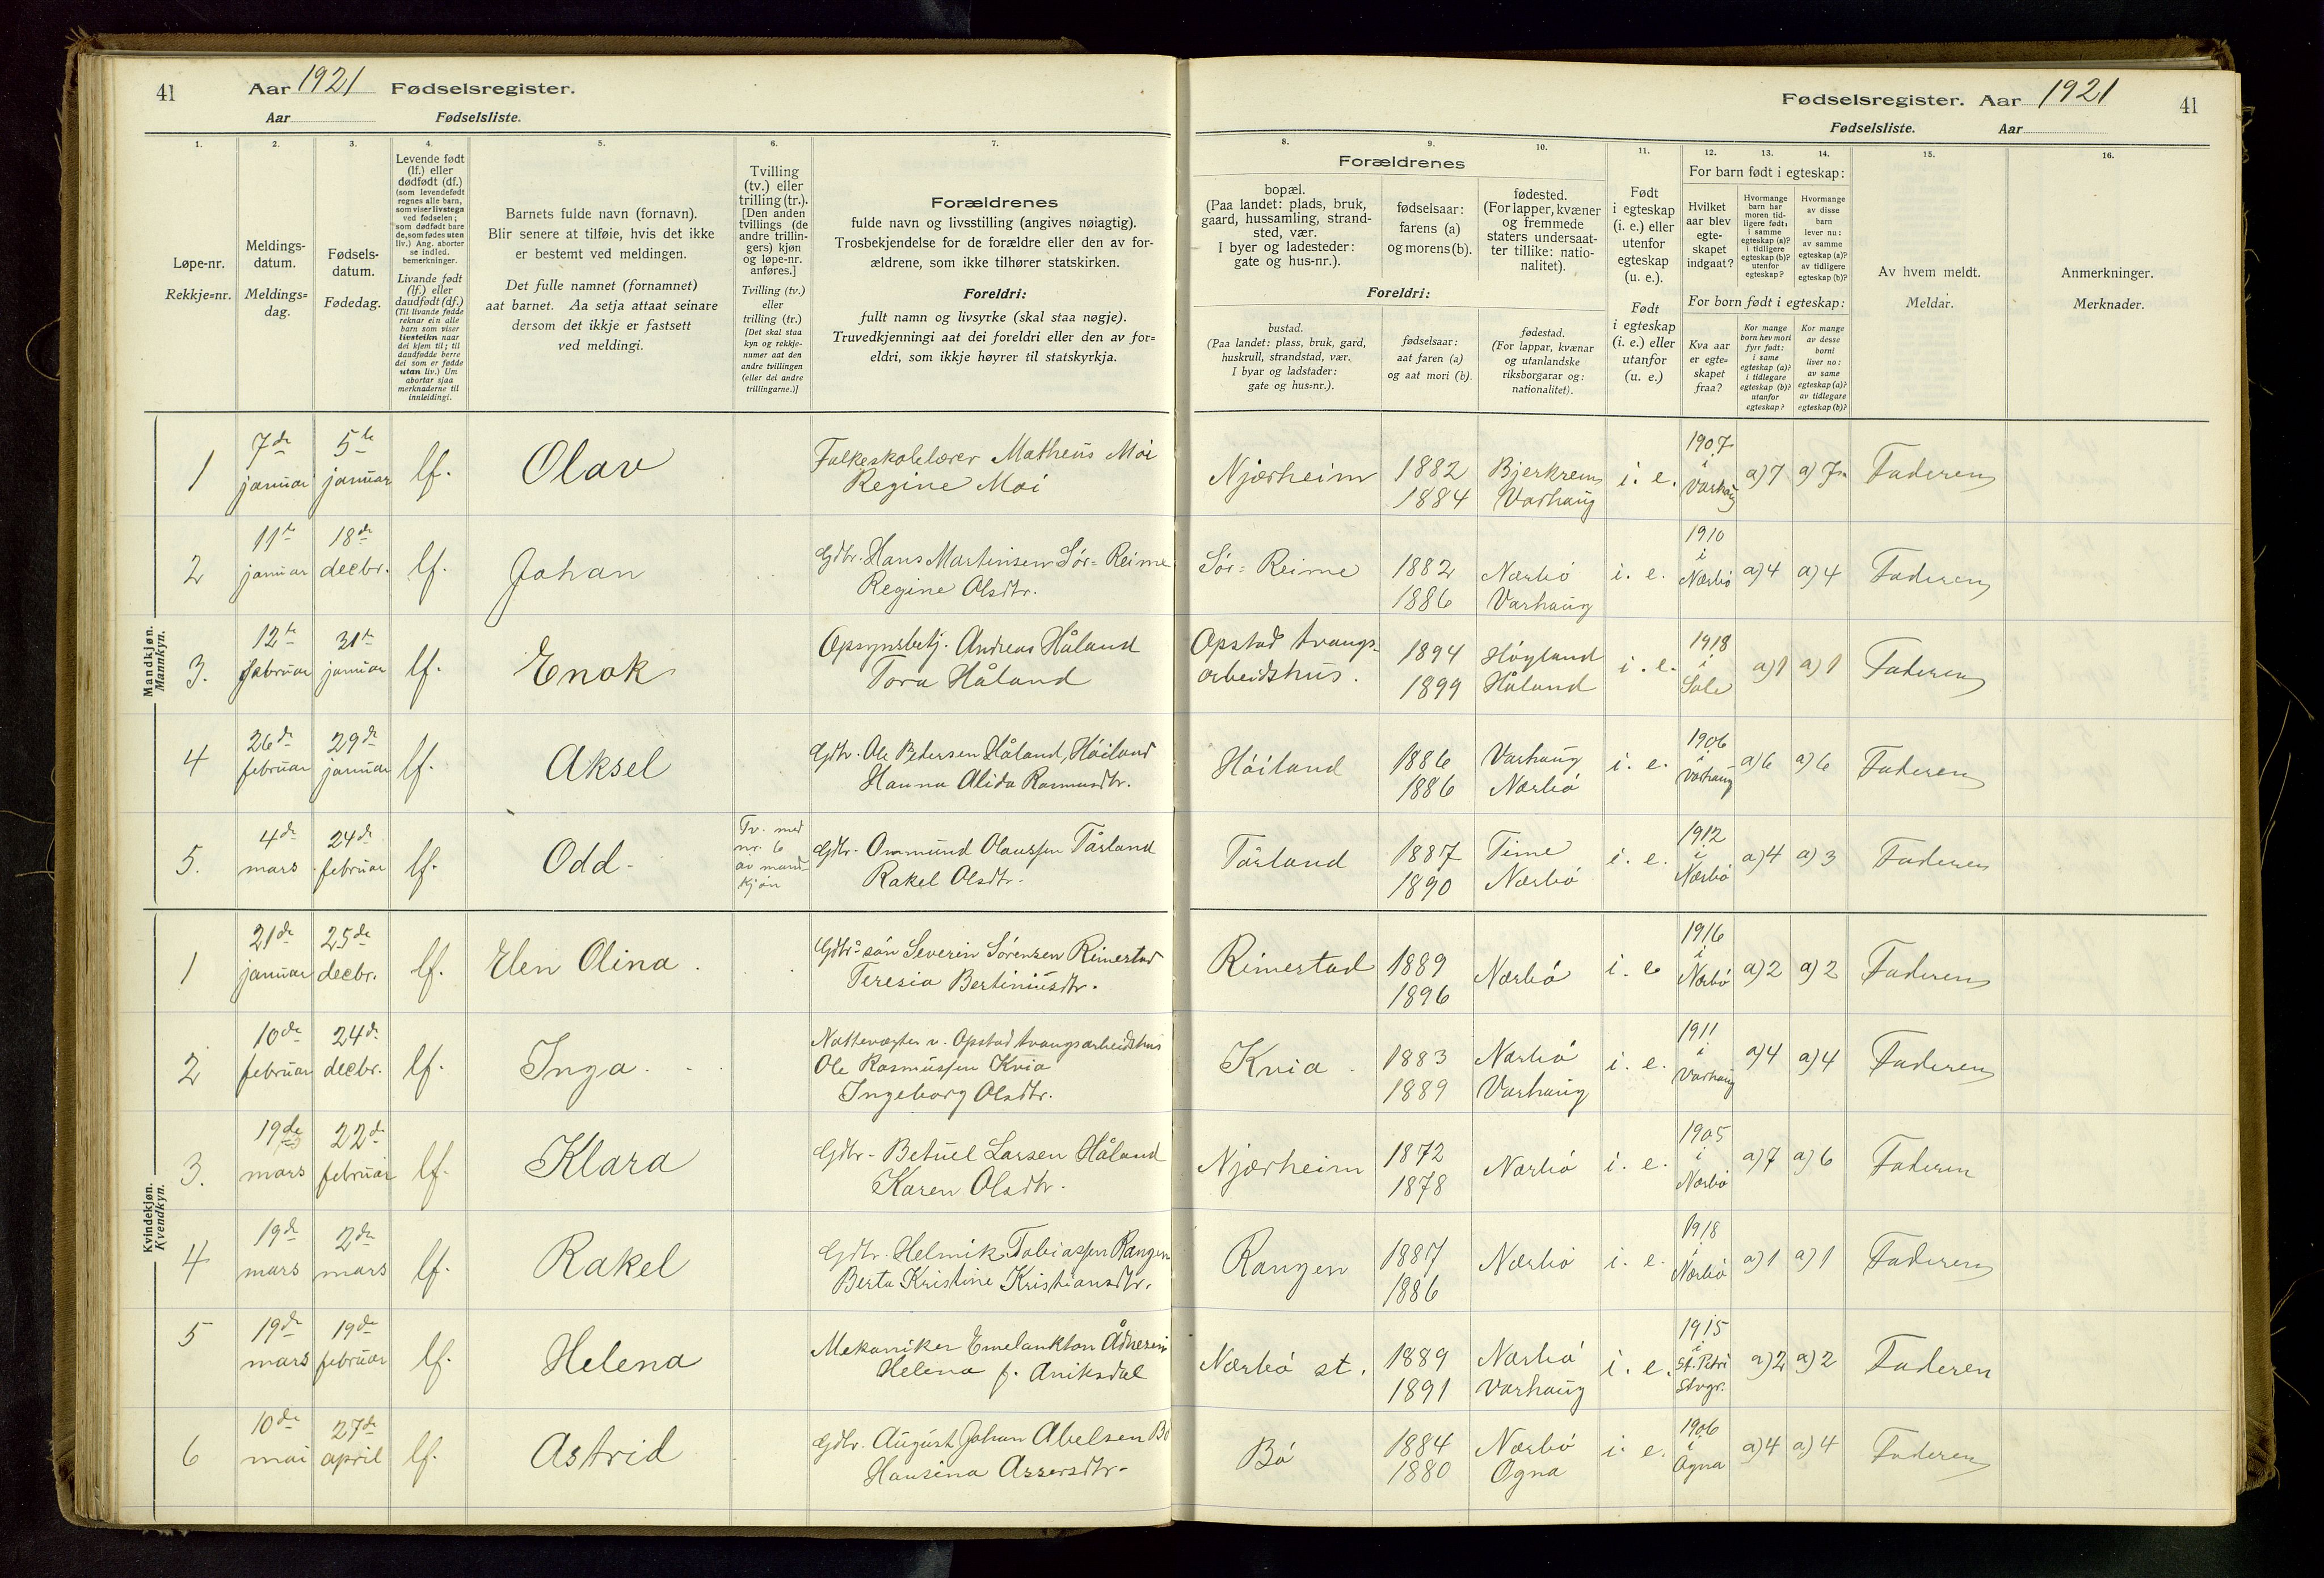 41 Aar 1921 Fødselsregister.
Aar Fødselsliste.
Fødselsregister. Aar 1921 41
Fødselsliste. Aar
1. 2. 3. 4. 5. 6. 7.
Løpe-nr.
Rekkje=nr.
Meldings-
datum.
Meldings=
dag.
Fødsels-
datum.
Fødedag.
Levende født
(lf.) eller
dødfødt (df.)
(som levendefødt
regnes alle barn,
som viser livstegn
ved fødselen;
som dødfødt bare
de, som fødes uten
liv.) Ang. aborter
se indled.
bemerkninger.
Livande født
(lf.) eller
daudfødt (df.)
(Til livande fødde
reknar ein alle
barn som viser
livsteikn naar
dei kjem til; til
daudfødde berre
dei som er fødde
utan liv.) Um
abortar sjaa
merknaderne til
innleidingi.
Barnets fulde navn (fornavn).
Blir senere at tilføie, hvis det ikke
er bestemt ved meldingen.
Det fulle namnet (fornamnet)
aat barnet. Aa setja attaat seinare
dersom det ikkje er fastsett
ved meldingi.
Tvilling
(tv.) eller
trilling (tr.).
[Den anden
tvillings (de
andre trillin-
gers) kjøn
og løpe-nr.
anføres.]
Tvilling (tv.)
eller
trilling (tr.)
[Det skal staa
kyn og rekkje-
numer aat den
andre tvillingen
(eller dei andre
trillingarne.)]
Forældrenes
fulde navn og livsstilling (angives nøiagtig).
Trosbekjendelse for de forældre eller den av for-
ældrene, som ikke tilhører statskirken.
Foreldri:
fullt namn og livsyrke (skal staa nøgje).
Truvedkjenningi aat dei foreldri eller den av for=
eldri, som ikkje høyrer til statskyrkja.
8. 9. 10. 11. 12. 13. 14. 15. 16.
Forældrenes
bopæl.
(Paa landet: plads, bruk,
gaard, hussamling, strand-
sted, vær.
I byer og ladesteder:
gate og hus-nr.).
fødselsaar:
farens (a)
og morens (b).
fødested.
(For lapper, kvæner
og fremmede
staters undersaat-
ter tillike: natio-
nalitet).
Foreldri:
bustad.
(Paa landet: plass, bruk, gard,
huskrull, strandstad, vær.
I byar og ladstader:
gate og hus=nr.).
fødselsaar:
aat faren (a)
og aat mori (b).
fødestad.
(For lappar, kvænar
og utanlandske
riksborgarar og:
nationalitet).
Født
i egteskap
(i. e.) eller
utenfor
egteskap
(u. e.).
Født
i egteskap
(i. e.) eller
utanfor
(u. e.)
For barn født i egteskap:
Hvilket
aar blev
egte-
skapet
indgaat?
Hvormange
barn har
moren tid-
ligere født:
i samme
egteskap (a)?
i tidligere
egteskap (b)?
utenfor
egteskap?
Hvormange
av disse
barn
lever nu:
av samme
egteskap (a)?
av tidligere
egteskap (b)?
For born født i egteskap:
Kva aar
er egte-
skapet
fraa?
Kor mange
born hev mori
fyrr født:
i same
egteskap (a)?
i tidlegare
egteskap (b)?
utanfor
egteskap?
Kor mange
av desse
borni
liver no:
av same
egteskap (a)?
av tidlegare
egteskap (b)?
Av hvem meldt.
Meldar.
Anmerkninger.
Merknader.
Mandkjøn.
Mannkyn.
1 7de januar 5te januar lf. Olav Folkeskolelærer Matheus Moi
Regine Moi
Njærheim 1882 1884 Bjerkrem Varhaug i. e. 1907 i Varhaug a) 7 a) 7 Faderen
2 11te januar 18de decbr. lf. Johan Gdbr. Hans Martinsen Sør=Reime
Regine Olsdtr.
Sør=Reime 1882 1886 Nærbø Varhaug i. e. 1910 i Nærbø a) 4 a) 4 Faderen
3. 12te februar 31te januar lf. Enok Opsynsbetj. Andreas Håland
Tora Håland
Opstad tvangs-
arbeidshus. 1894 1899 Høyland Håland i. e. 1918 i Sole a) 1 a) 1 Faderen
4 26de februar 29de januar lf. Aksel Gdbr. Ole Pedersen Håland, Høiland
Hanna Alida Rasmusdtr.
Høiland 1886 1886 Varhaug Nærbø i. e. 1906 i Varhaug a) 6 a) 6 Faderen
5. 4de mars 24de februar lf. Odd Tv. med
nr. 6
av mand-
kjøn
Gdbr. Ommund Olaussen Tårland
Rakel Olsdtr.
Tårland 1887 1890 Time Nærbø i. e. 1912 i Nærbø a) 4 a) 3 Faderen
Kvindekjøn.
Kvendkyn.
1 21de januar 25de decbr. lf. Elen Olina Gdbr. søn Severin Sørensen Rimestad
Teresia Bertiniusdtr.
Rimestad 1889 1896 Nærbø i. e. 1916 i Nærbø a) 2 a) 2 Faderen
2 10de februar 24de decbr. lf. Inga Nattevægter v. Opstad tvangsarbeidshus
Ole Rasmussen Kvia
Ingeborg Olsdtr.
Kvia 1883 1889 Nærbø Varhaug i. e. 1911 i Varhaug a) 4 a) 4 Faderen
3. 19de mars 22de februar lf. Klara Gdbr. Betuel Larsen Håland
Karen Olsdtr.
Njærheim 1872 1878 Nærbø i. e. 1905 i Nærbø a) 7 a) 6 Faderen
4 19de mars 2den mars lf. Rakel Gdbr. Helmik Tobiassen Rangen
Berta Kristine Kristiansdtr.
Rangen 1887 1886 Nærbø i. e. 1918 i Nærbø a) 1 a) 1 Faderen
5 19de mars 19de februar lf. Helena Mekaniker Emelankton
Helena f. Aniksdal
Nærbø st. 1889 1891 Nærbø Varhaug i. e. 1915 i St. Petri Stvgr. a) 2 a) 2 Faderen
6 10de mai 27de april lf. Astrid Gdbr. August Johan Abelsen Bø
Hansina Assersdtr.
Bø 1884 1880 Nærbø Ogna i. e. 1906 i Ogna a) 4 a) 4 Faderen